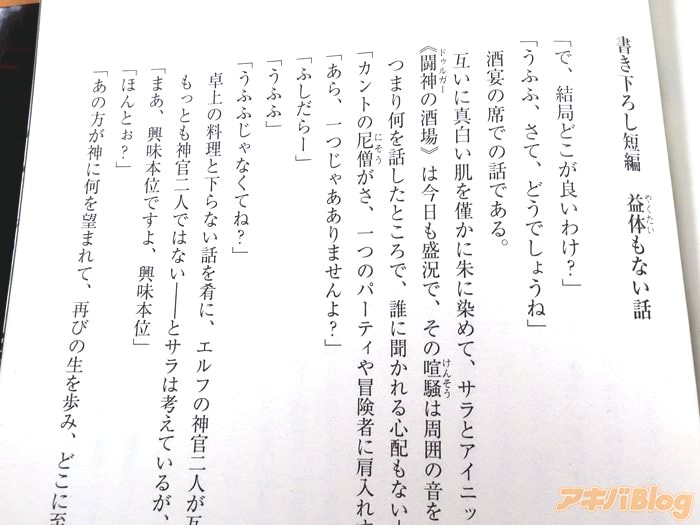 書き下ろし短編　益体もない話
やくたい
「で、結局どこが良いわけ？」
「うふふ、さて、どうでしょうね」
酒宴の席での話である。
互いに真白い肌を僅かに朱に染めて、サラとアイニッ
《闘神の酒場》は今日も盛況で、その喧騒は周囲の音を
ドゥルガー
けんそう
つまり何を話したところで、誰に聞かれる心配もない
「カントの尼僧がさ、一つのパーティや冒険者に肩入れす
にそう
「あら、一つじゃありませんよ？」
「ふしだらー」
「うふふ」
「うふふじゃなくてね？」
卓上の料理と下らない話を肴に、エルフの神官二人が互
もっとも神官二人ではない――とサラは考えているが、
「まあ、興味本位ですよ、興味本位」
「ほんとぉ？」
「あの方が神に何を望まれて、再びの生を歩み、どこに至
アキバBlog